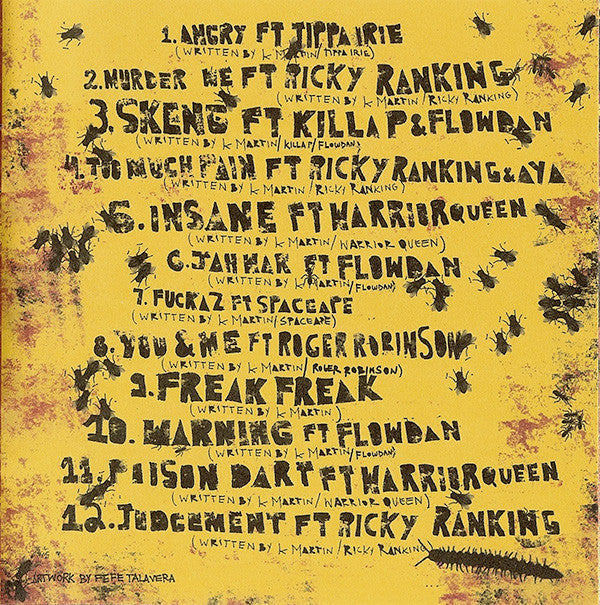 1. ANGRY FT TIPPA IRIE
(WRITTEN BY K MARTIN/TIPPA IRIE)
2. MURDER WE FT RICKY RANKING
(WRITTEN BY K MARTIN/RICKY RANKING)
3. SKENG FT KILLA P & FLOWDAN
(WRITTEN BY K MARTIN/KILLA P/FLOWDAN)
4. TOO MUCH PAIN FT RICKY RANKING & AYA
(WRITTEN BY K MARTIN/RICKY RANKING)
5. INSANE FT WARRIOR QUEEN
(WRITTEN BY K MARTIN/WARRIOR QUEEN)
6. JAH WAR FT FLOWDAN
(WRITTEN BY K MARTIN/FLOWDAN)
7. FUCKAZ FT SPACEAPE
(WRITTEN BY K MARTIN/SPACEAPE)
8. YOU & ME FT ROGER ROBINSON
(WRITTEN BY K MARTIN/ROGER ROBINSON)
9. FREAK FREAK
(WRITTEN BY K MARTIN)
10. WARNING FT FLOWDAN
(WRITTEN BY K MARTIN/FLOWDAN)
11. POISON DART FT WARRIOR QUEEN
(WRITTEN BY K MARTIN/WARRIOR QUEEN)
12. JUDGEMENT FT RICKY RANKING
(WRITTEN BY K MARTIN/RICKY RANKING
ARTWORK BY FEFE TALAVERA